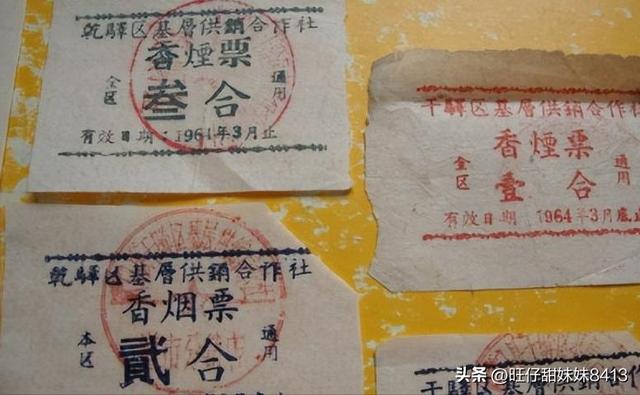 乾驛区基層供銷合作社
香煙票
全区
叁合
通用
有效日期：1964年3月止
干驛区基層供銷合作
香煙票
全区
壹合
通用
有效日期 1964年3月底止
乾驛区基層供銷合作社
香烟票
本区
貳合
通用
干驛区基層供銷合作
头条 @旺仔甜妹妹8413